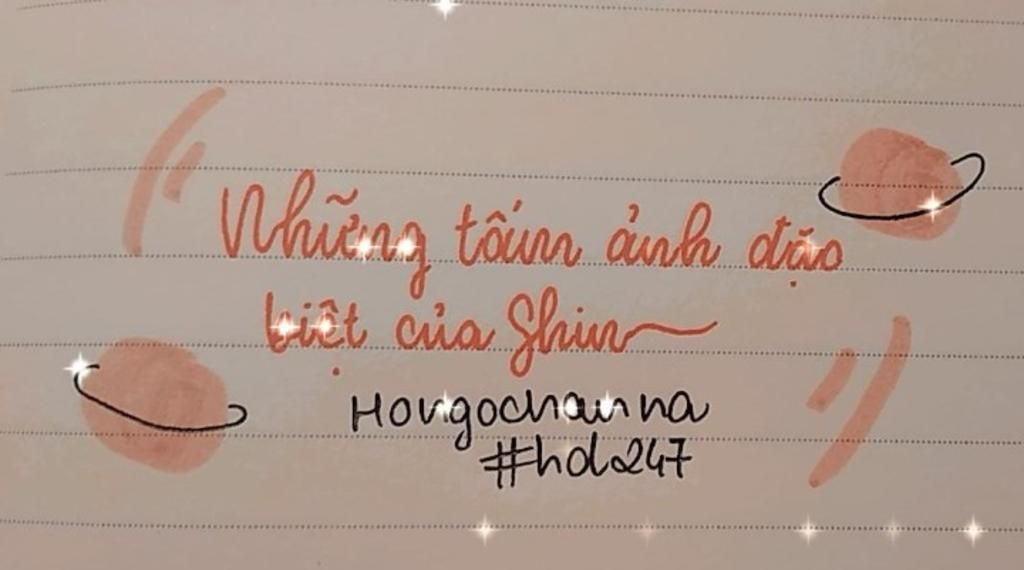 Những tấm ảnh đặc
biệt của Shin
Hongochanna
#hd247